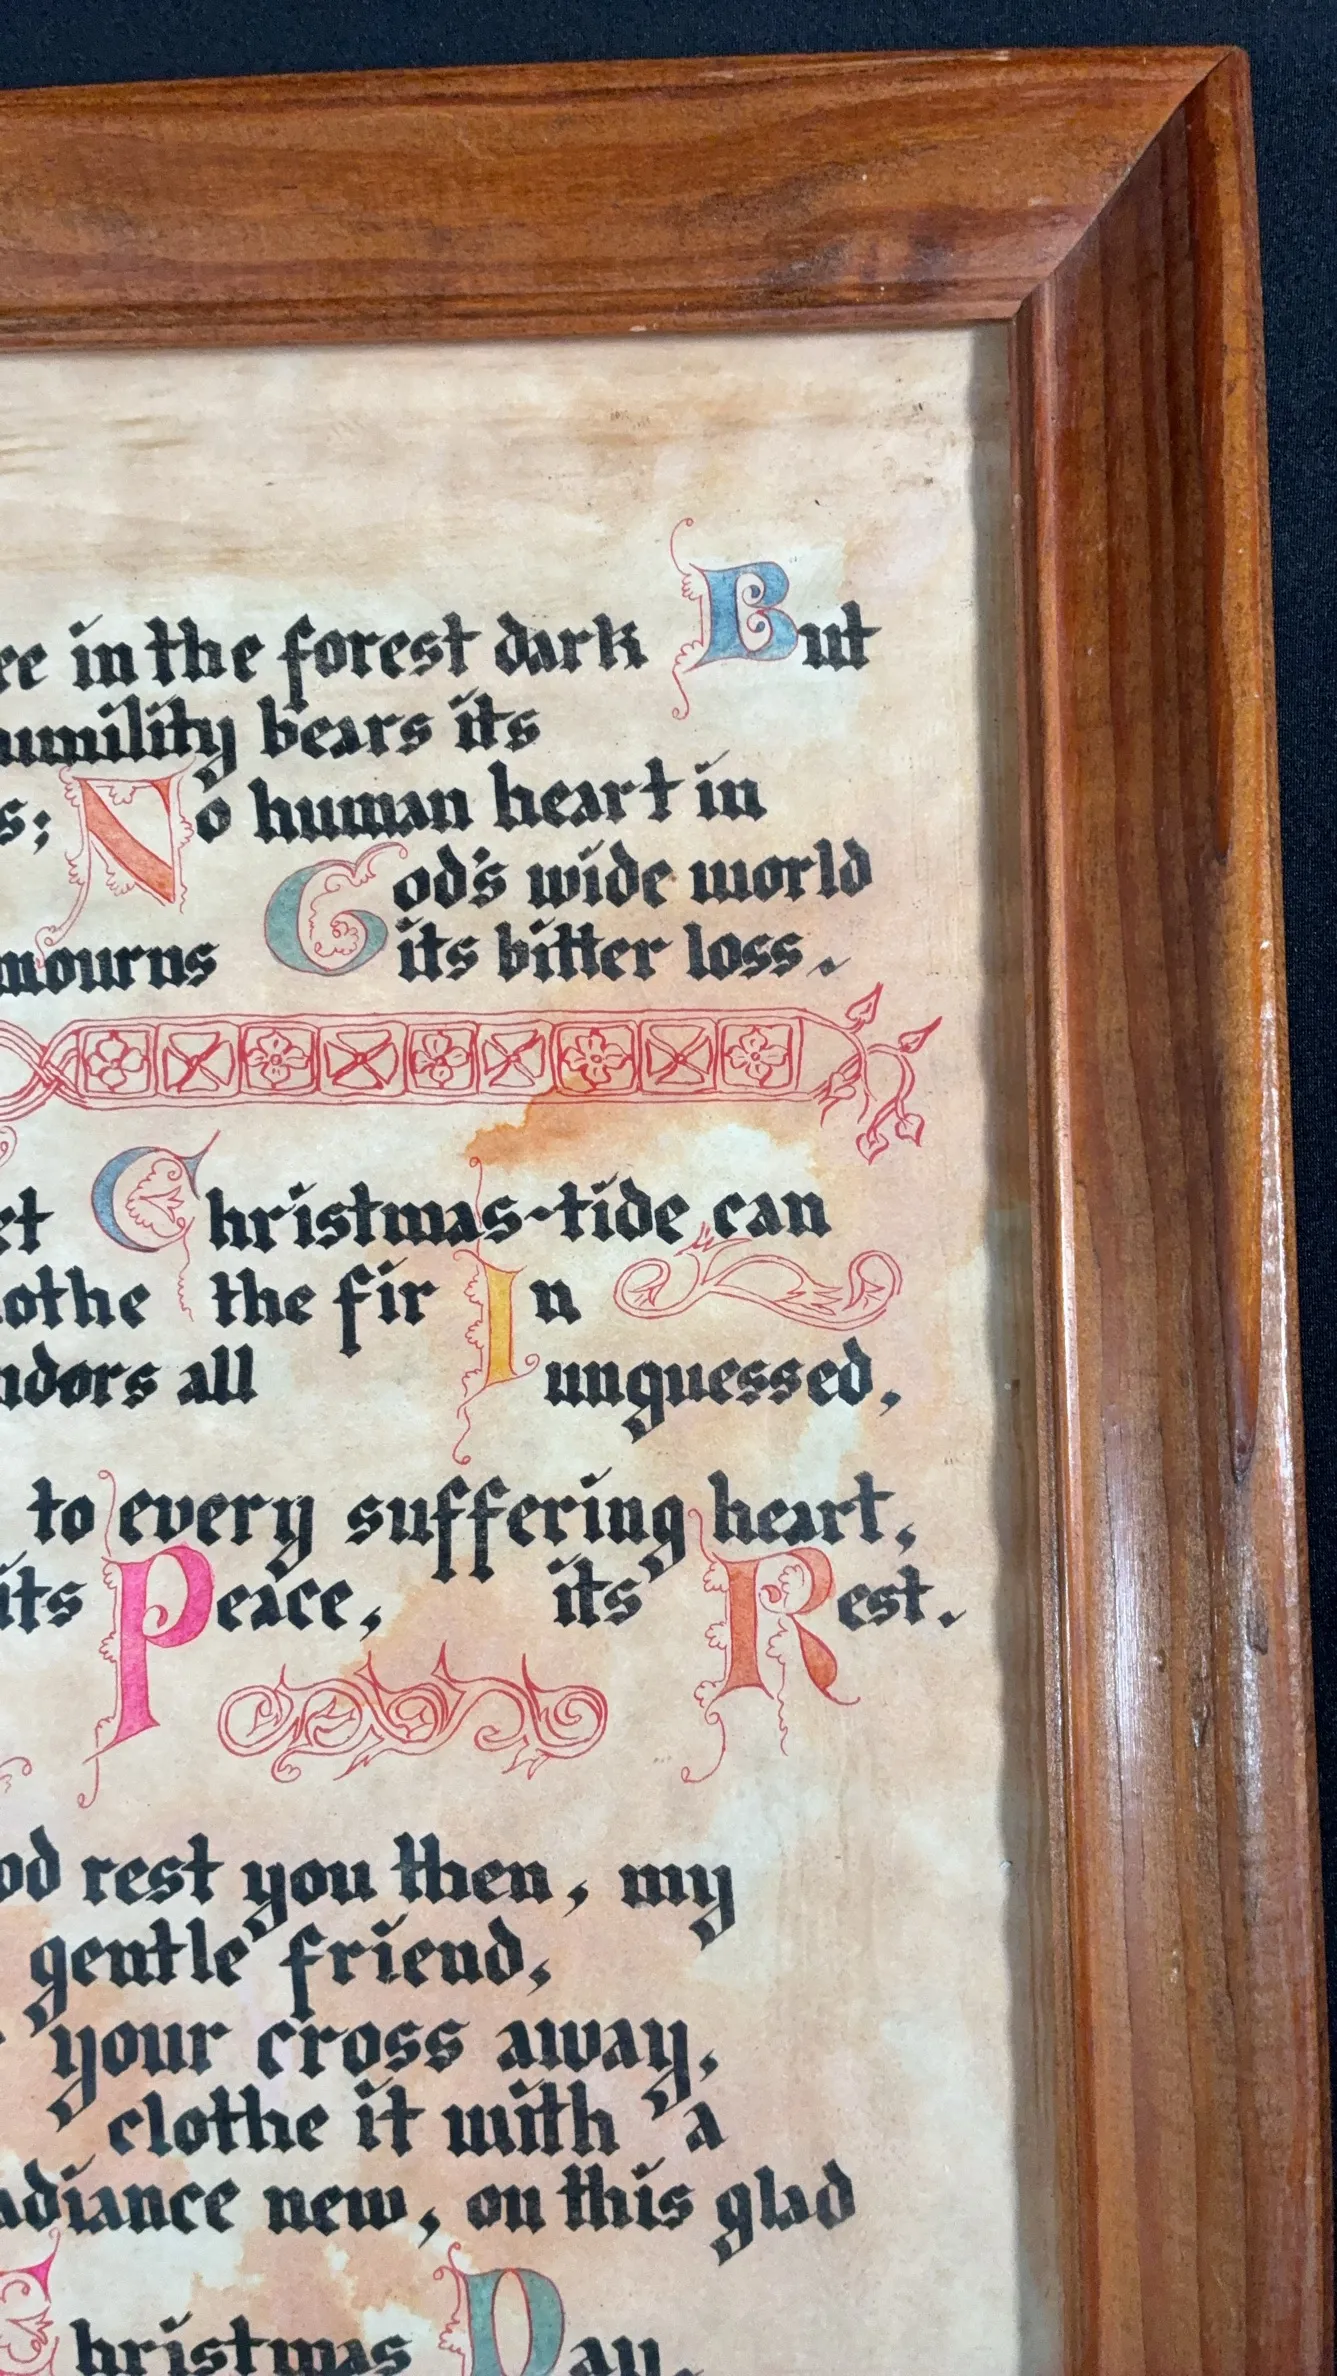 in the forest dark But
humility bears its
No human heart in
God's wide world
mourns its bitter loss.
Christmas-tide can
the fir In
all unguessed,
to every suffering heart,
its Peace, its Rest.
rest you then, my
gentle friend,
your cross away,
clothe it with a
new, on this glad
Christmas Day.